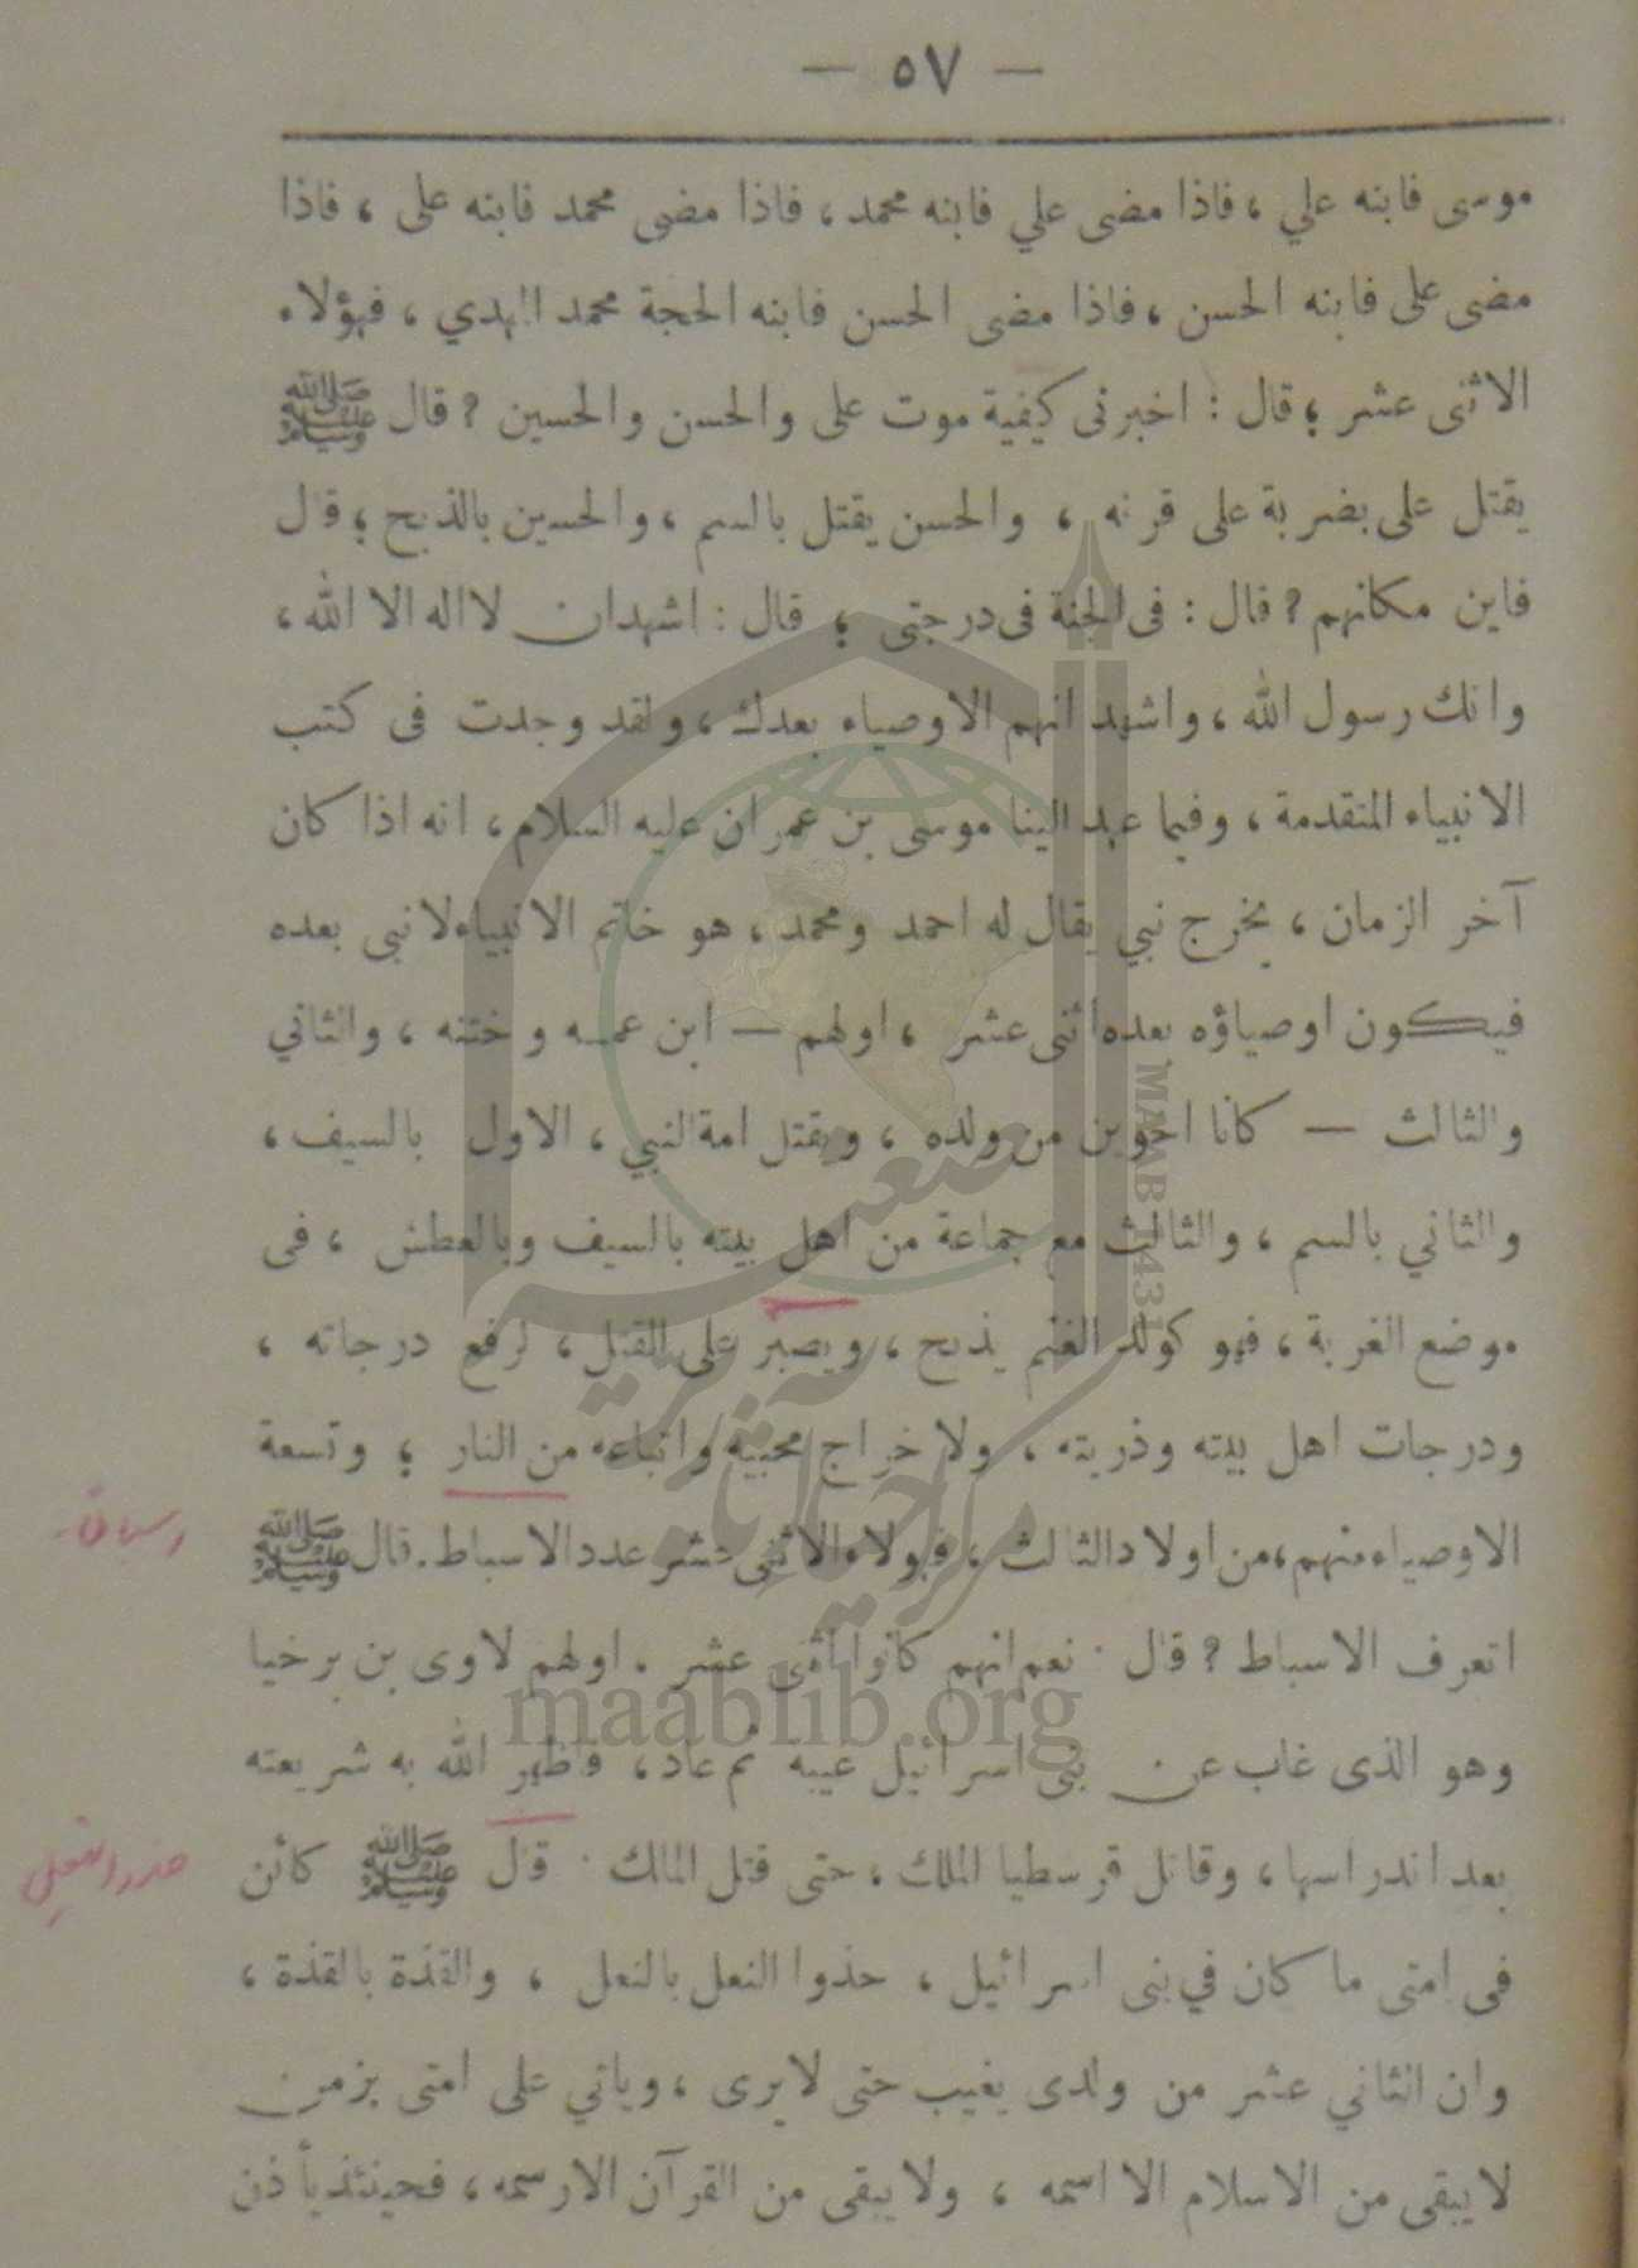 — ٥٧ —
موسى فابنه علي ، فاذا مضى علي فابنه محمد ، فاذا مضى محمد فابنه على ، فاذا
مضى على فابنه الحسن ، فاذا مضى الحسن فابنه الحجة محمد المهدي ، فهؤلاء
الاثنى عشر ؛ قال : اخبرنى كيفية موت على والحسن والحسين ? قال ﷺ
يقتل على بضربة على قرنه ، والحسن يقتل بالسم ، والحسين بالذبح ؛ قال
فاين مكانهم ? قال : فى الجنة فى درجتى ؛ قال : اشهدان لااله الا الله ،
وانك رسول الله ، واشهد انهم الاوصياء بعدك ، ولقد وجدت فى كتب
الانبياء المتقدمة ، وفيما عهد الينا موسى بن عمران عليه السلام ، انه اذا كان
آخر الزمان ، يخرج نبي يقال له احمد ومحمد ، هو خاتم الانبياء لانبى بعده
فيكون اوصياؤه بعده اثنى عشر ، اولهم — ابن عمه وختنه ، والثاني
والثالث — كانا اخوين من ولده ، ويقتل امة النبي ، الاول بالسيف ،
والثاني بالسم ، والثالث مع جماعة من اهل بيته بالسيف وبالعطش ، فى
موضع الغربة ، فهو كولد الغنم يذبح ، ويصبر على القتل ، لرفع درجاته ،
ودرجات اهل بيته وذريته ، ولاخراج محبيه واتباعه من النار ؛ وتسعة
الاوصياء منهم ، من اولاد الثالث ، فهولاء الاثنى عشر عدد الاسباط . قال ﷺ
اتعرف الاسباط ? قال . نعم انهم كانوا اثنى عشر . اولهم لاوى بن برخيا
وهو الذى غاب عن بنى اسرائيل غيبه ثم عاد ، فاظهر الله به شريعته
بعد اندراسها ، وقاتل قرسطيا الملك ، حتى قتل الملك . قال ﷺ كائن
فى امتى ما كان في بنى اسرائيل ، حذوا النعل بالنعل ، والقذة بالقذة ،
وان الثاني عشر من ولدى يغيب حتى لايرى ، وياتي على امتى بزمن
لايبقى من الاسلام الا اسمه ، ولا يبقى من القرآن الارسمه ، فحينئذ يأذن
maablib.org